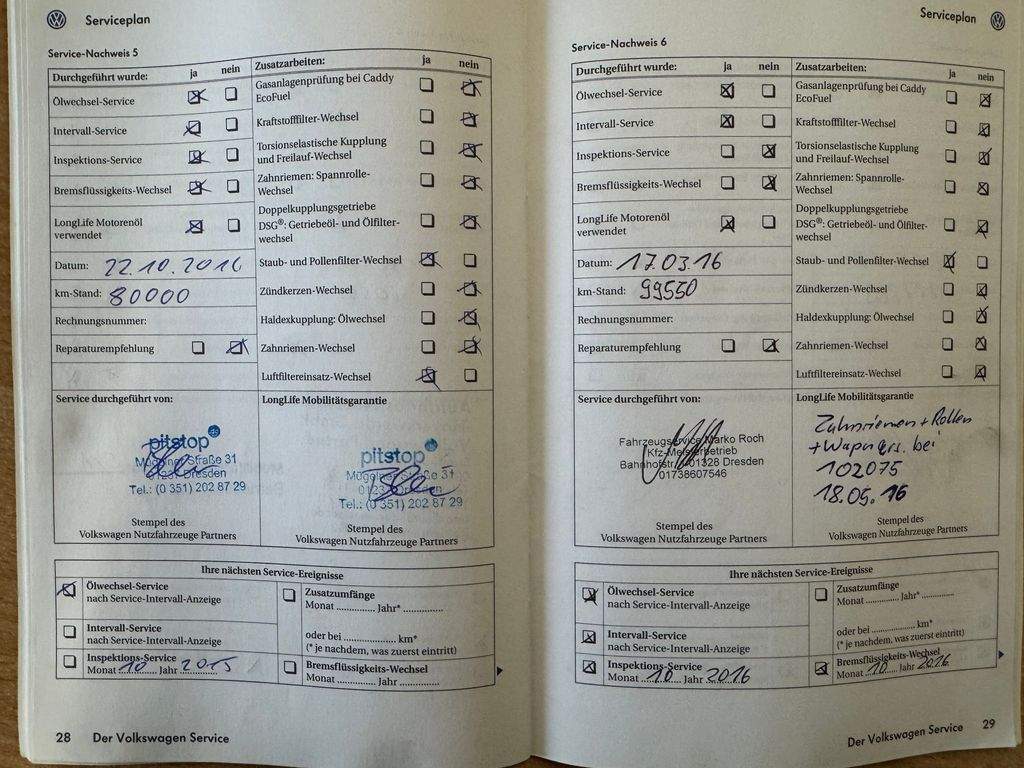 Serviceplan
Service-Nachweis 5
Durchgeführt wurde: ja nein
Ölwechsel-Service
Intervall-Service
Inspektions-Service
Bremsflüssigkeits-Wechsel
LongLife Motorenöl
verwendet
Datum: 22.10.2014
km-Stand: 80000
Rechnungsnummer:
Reparaturempfehlung
Zusatzarbeiten: ja nein
Gasanlagenprüfung bei Caddy
EcoFuel
Kraftstofffilter-Wechsel
Torsionselastische Kupplung
und Freilauf-Wechsel
Zahnriemen: Spannrolle-
Wechsel
Doppelkupplungsgetriebe
DSG®: Getriebeöl- und Ölfilter-
wechsel
Staub- und Pollenfilter-Wechsel
Zündkerzen-Wechsel
Haldexkupplung: Ölwechsel
Zahnriemen-Wechsel
Luftfiltereinsatz-Wechsel
Service durchgeführt von:
pitstop
Mügelner Straße 31
01237 Dresden
Tel.: (0 351) 202 87 29
Stempel des
Volkswagen Nutzfahrzeuge Partners
LongLife Mobilitätsgarantie
pitstop
Mügelner Straße 31
01237 Dresden
Tel.: (0 351) 202 87 29
Stempel des
Volkswagen Nutzfahrzeuge Partners
Ihre nächsten Service-Ereignisse
Ölwechsel-Service
nach Service-Intervall-Anzeige
Intervall-Service
nach Service-Intervall-Anzeige
Inspektions-Service
Monat 10 Jahr 2015
Zusatzumfänge
Monat ............. Jahr* .............
oder bei .................. km*
(* je nachdem, was zuerst eintritt)
Bremsflüssigkeits-Wechsel
Monat ............. Jahr .............
28 Der Volkswagen Service
Serviceplan
Service-Nachweis 6
Durchgeführt wurde: ja nein
Ölwechsel-Service
Intervall-Service
Inspektions-Service
Bremsflüssigkeits-Wechsel
LongLife Motorenöl
verwendet
Datum: 17.03.16
km-Stand: 99550
Rechnungsnummer:
Reparaturempfehlung
Zusatzarbeiten: ja nein
Gasanlagenprüfung bei Caddy
EcoFuel
Kraftstofffilter-Wechsel
Torsionselastische Kupplung
und Freilauf-Wechsel
Zahnriemen: Spannrolle-
Wechsel
Doppelkupplungsgetriebe
DSG®: Getriebeöl- und Ölfilter-
wechsel
Staub- und Pollenfilter-Wechsel
Zündkerzen-Wechsel
Haldexkupplung: Ölwechsel
Zahnriemen-Wechsel
Luftfiltereinsatz-Wechsel
Service durchgeführt von:
Fahrzeugservice Marko Roch
Kfz-Meisterbetrieb
Bahnhofstr. 01328 Dresden
01738607546
Stempel des
Volkswagen Nutzfahrzeuge Partners
LongLife Mobilitätsgarantie
Zahnriemen + Rollen
+ bei
102075
18.05.16
Stempel des
Volkswagen Nutzfahrzeuge Partners
Ihre nächsten Service-Ereignisse
Ölwechsel-Service
nach Service-Intervall-Anzeige
Intervall-Service
nach Service-Intervall-Anzeige
Inspektions-Service
Monat 10 Jahr 2016
Zusatzumfänge
Monat ............. Jahr* .............
oder bei .................. km*
(* je nachdem, was zuerst eintritt)
Bremsflüssigkeits-Wechsel
Monat 10 Jahr 2016
Der Volkswagen Service 29